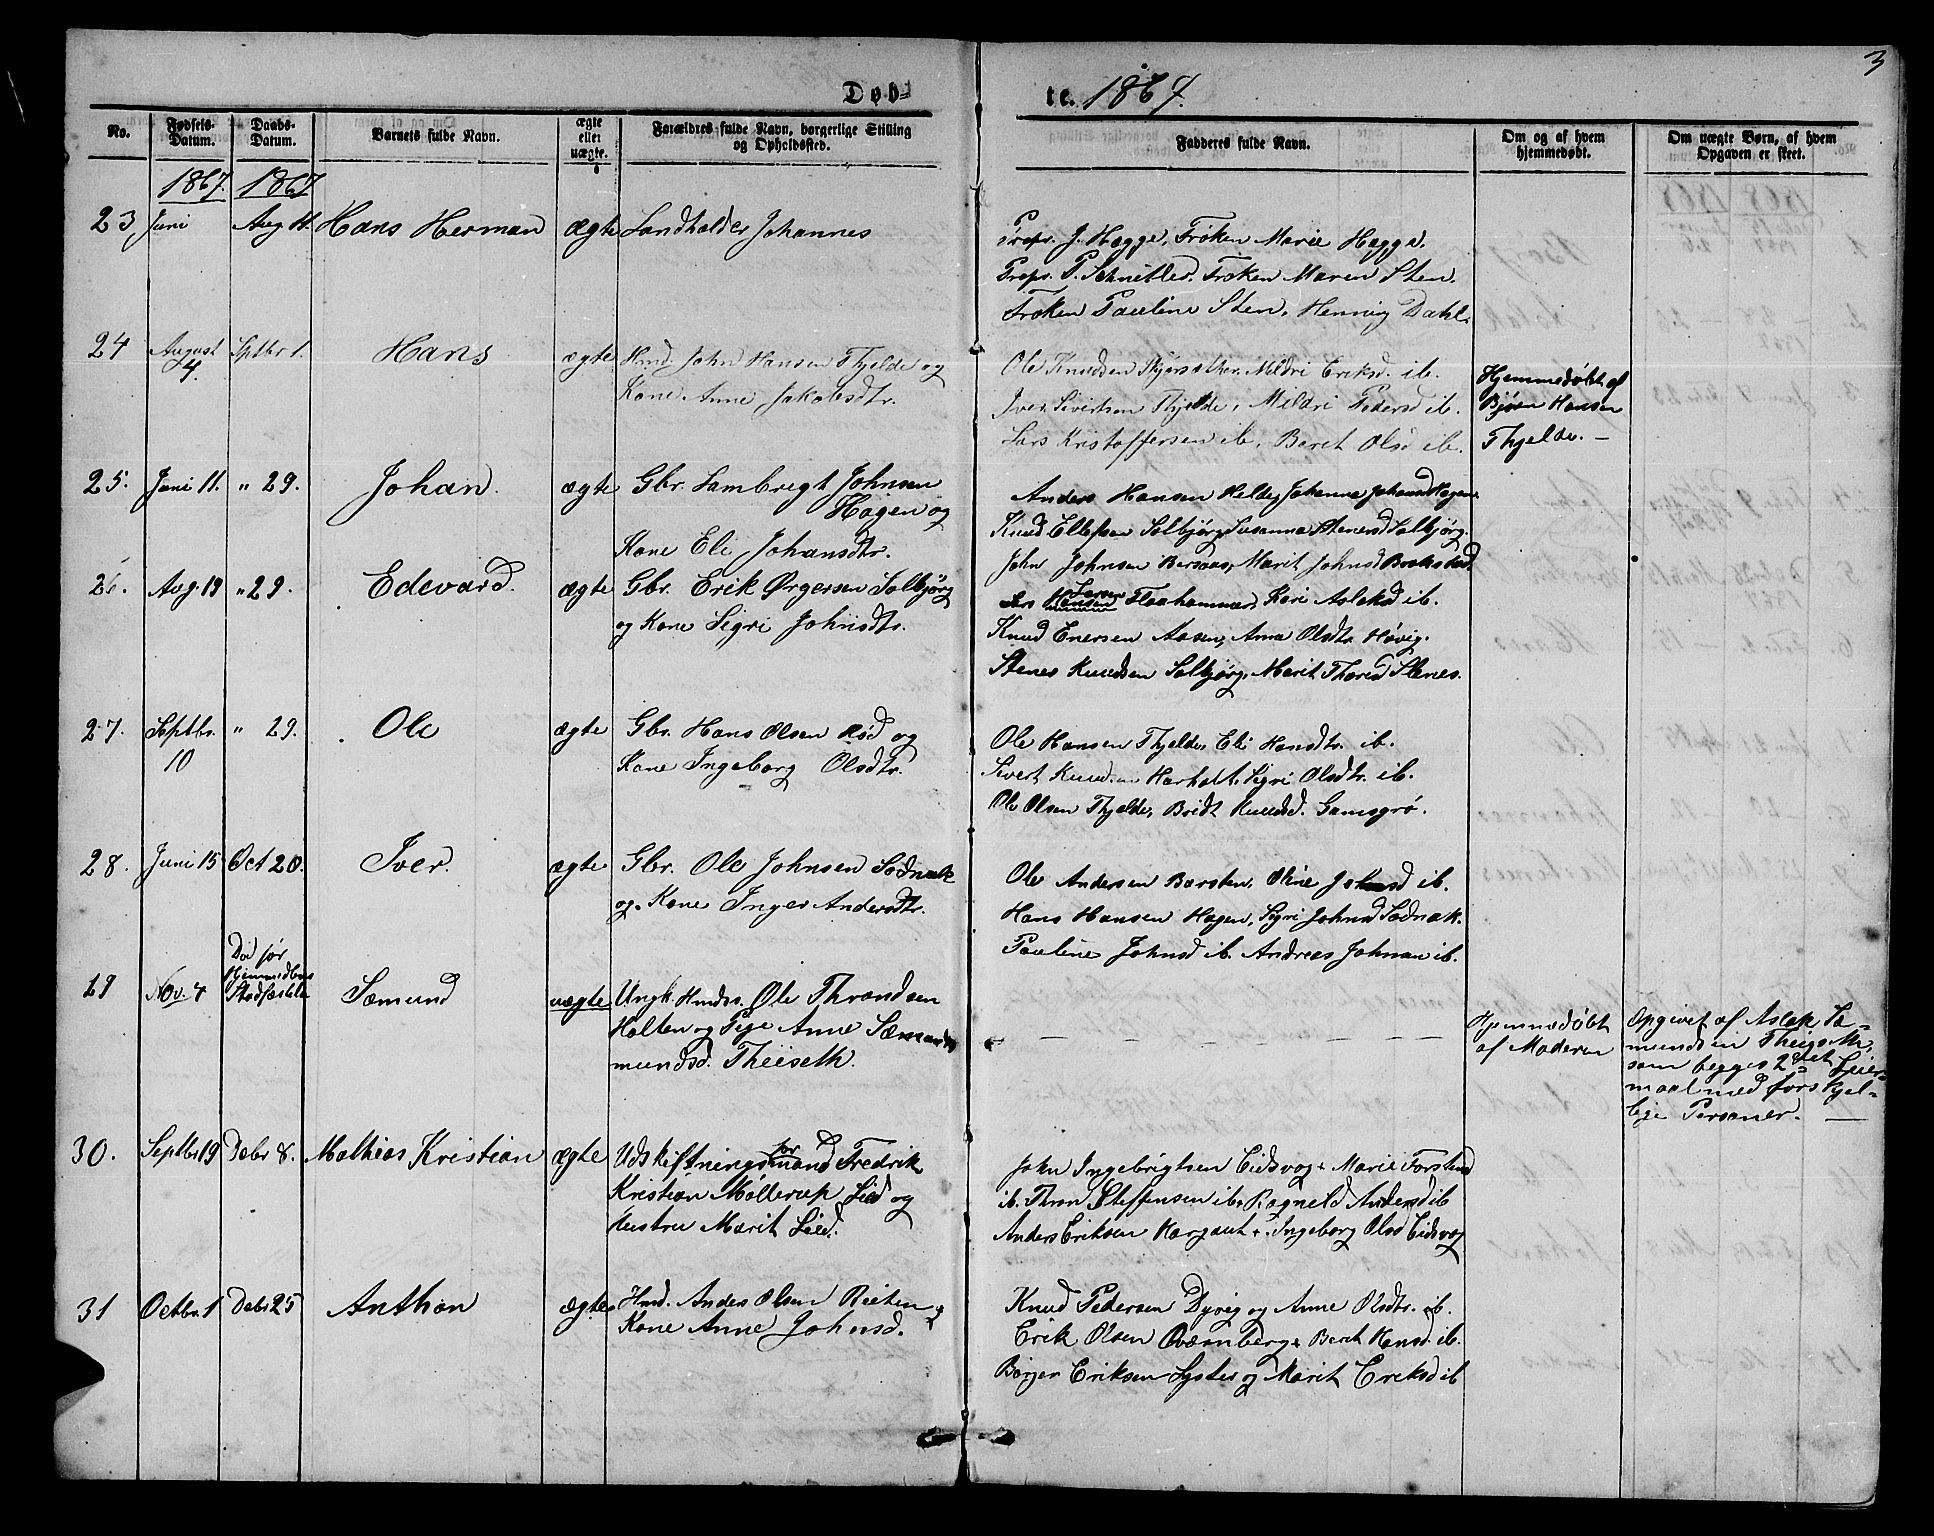 3
Døb= te. 1867.
No.
Fødsels-Datum.
Daabs-Datum.
Barnets fulde Navn.
ægte eller uægte.
Forældres fulde Navn, borgerlige Stilling og Opholdssted.
Faddernes fulde Navn.
Om og af hvem hjemmedøbt.
Om uægte Børn, af hvem Opgaven er skeet.
1867. 1867
23, Juni Aug 11. Hans Herman ægte Landholder Johannes
Propr. J. Hagge, Frøken Marie Hagge,
Propr. P. Schnitler, Frøken Maren Sten,
Frøken Pauline Sten, Henning Dahl.
24 August 4. Septbr 1. Hans ægte Hmd. John Hansen Thjelde og
Kone Anne Jakobsdtr.
Ole Knudsen Mildri Eriksd. ib.
Iver Sivertsen Thjelde, Mildri Pedersd ib.
Lars Kristoffersen ib, Beret Olsd ib.
Hjemmedøbt af
Bjørn Hansen
Thjelde. —
25. Juni 11. " 29. Johan. ægte Gbr. Lambregt Johnsen
Hagen og
Kone Eli Johansdtr.
Anders Hansen Helde, Johanna Johansd Hagen.
Knud Ellefsen Solbjørg, Susanna Stenersd Solbjørg.
John Johnsen Bersaas, Marit Johnsd Bokstad
26. Aug. 19 " 29. Edevard. ægte Gbr. Erik Ørgersen Solbjørg
og Kone Sigri Johnsdtr.
Lars Larsen Hansen Flaahammer, Kari Aslaksd ib.
Knud Enersen Aasen, Anna Olsdtr. Høvig.
Stenes Knudsen Solbjørg, Marit Thoresd Stenes.
27. Septbr. 10 " 29. Ole ægte Gbr. Hans Olsen Rød og
Kone Ingeborg Olsdtr.
Ole Hansen Thjelde, Eli Hansdtr. ib.
Sivert Knudsen Harholt, Sigri Olsdtr. ib.
Ole Olsen Thjelde, Bridt Knudsd. Gamsgrø.
28. Juni 15 Oct 20. Iver. ægte Gbr. Ole Johnsen Sødnak
og Kone Inger Andersdtr.
Ole Andersen Barsten, Oline Johnsd ib.
Hans Hansen Hagen, Sigri Johnsd Sødnak.
Pauline Johnsd ib. Andreas Johnsen ib.
Død før
Hjemmedbens
Stadfæstelse
29 Nov. 4 Sæmund uægte Ungk. Hmdss. Ole Throndsen
Holten og Pige Anne Sæmund
mundsd. Thiiseth.
Hjemmedøbt
af Moderen
Opgivet af Aslak Sæ=
mundsen Theigs Mr,
som begges 2det Leier=
maal med forskjel=
lige Personer. —
30. Septbr 19 Debr 8. Mathias Kristian ægte Udskiftningsfor mand Fredrik
Kristian Møllerup Lied og
Hustru Marit Lied.
John Ingebrigtsen Eidsvog + Marie Forstad
ib. Thron Steffensen ib. Ragneld Andersd ib
Anders Eriksen Hargaut + Ingeborg Olsd Eidsvog
31 Octbr. 1 Debr 25 Anthon ægte Hmd. Anders Olsen Reiten &
Kone Anne Johnsd.
Knud Pedersen Dyvig og Anne Olsdtr. ib.
Erik Olsen Qværnberg + Berit Hansd. ib.
Børjer Eriksen Syster og Marit Eriksd ib